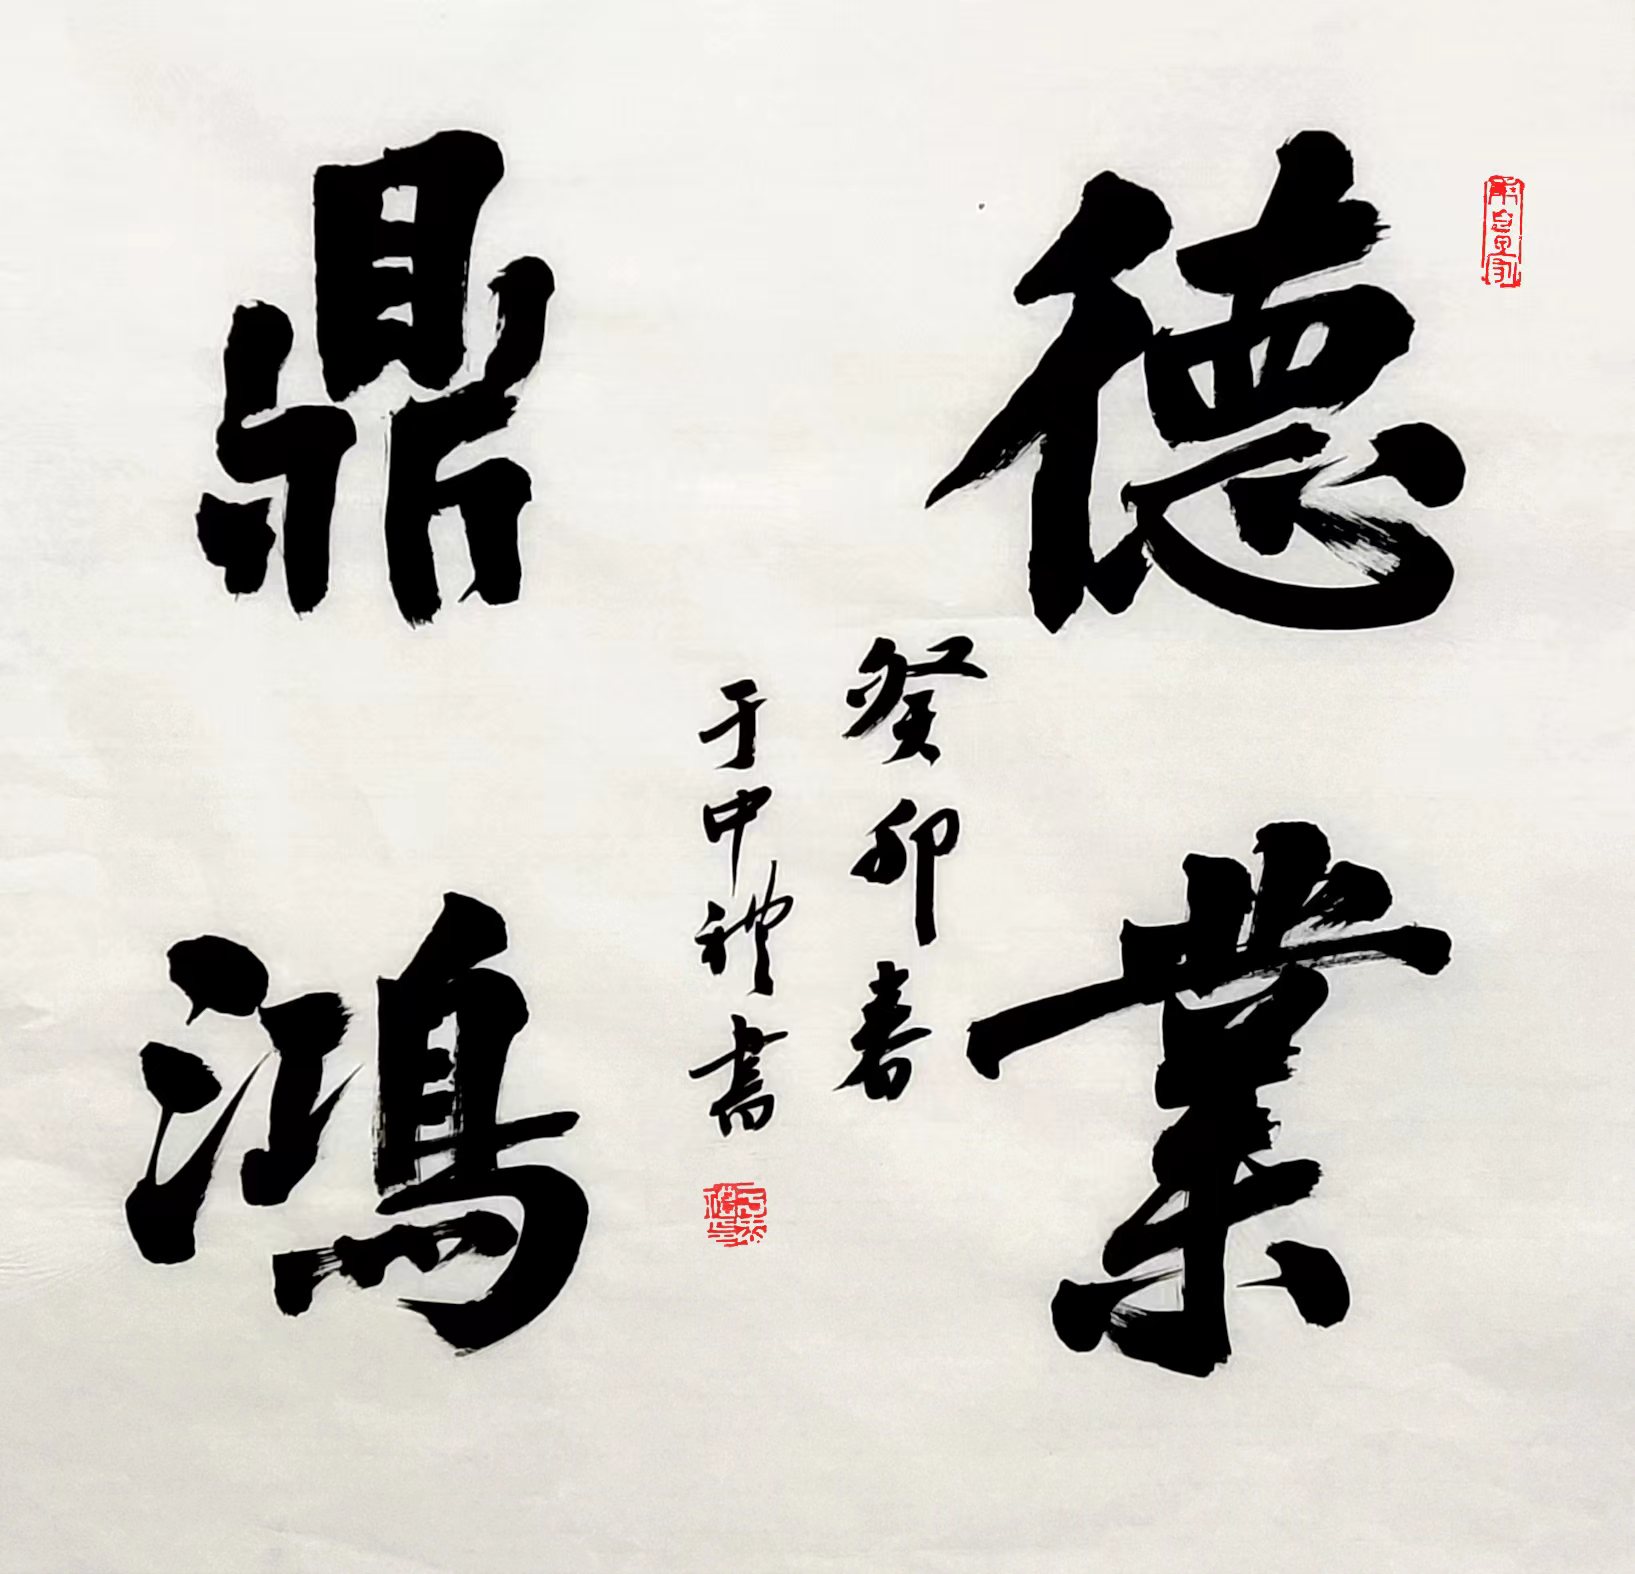 德業
鼎鴻
癸卯春
于中禮書